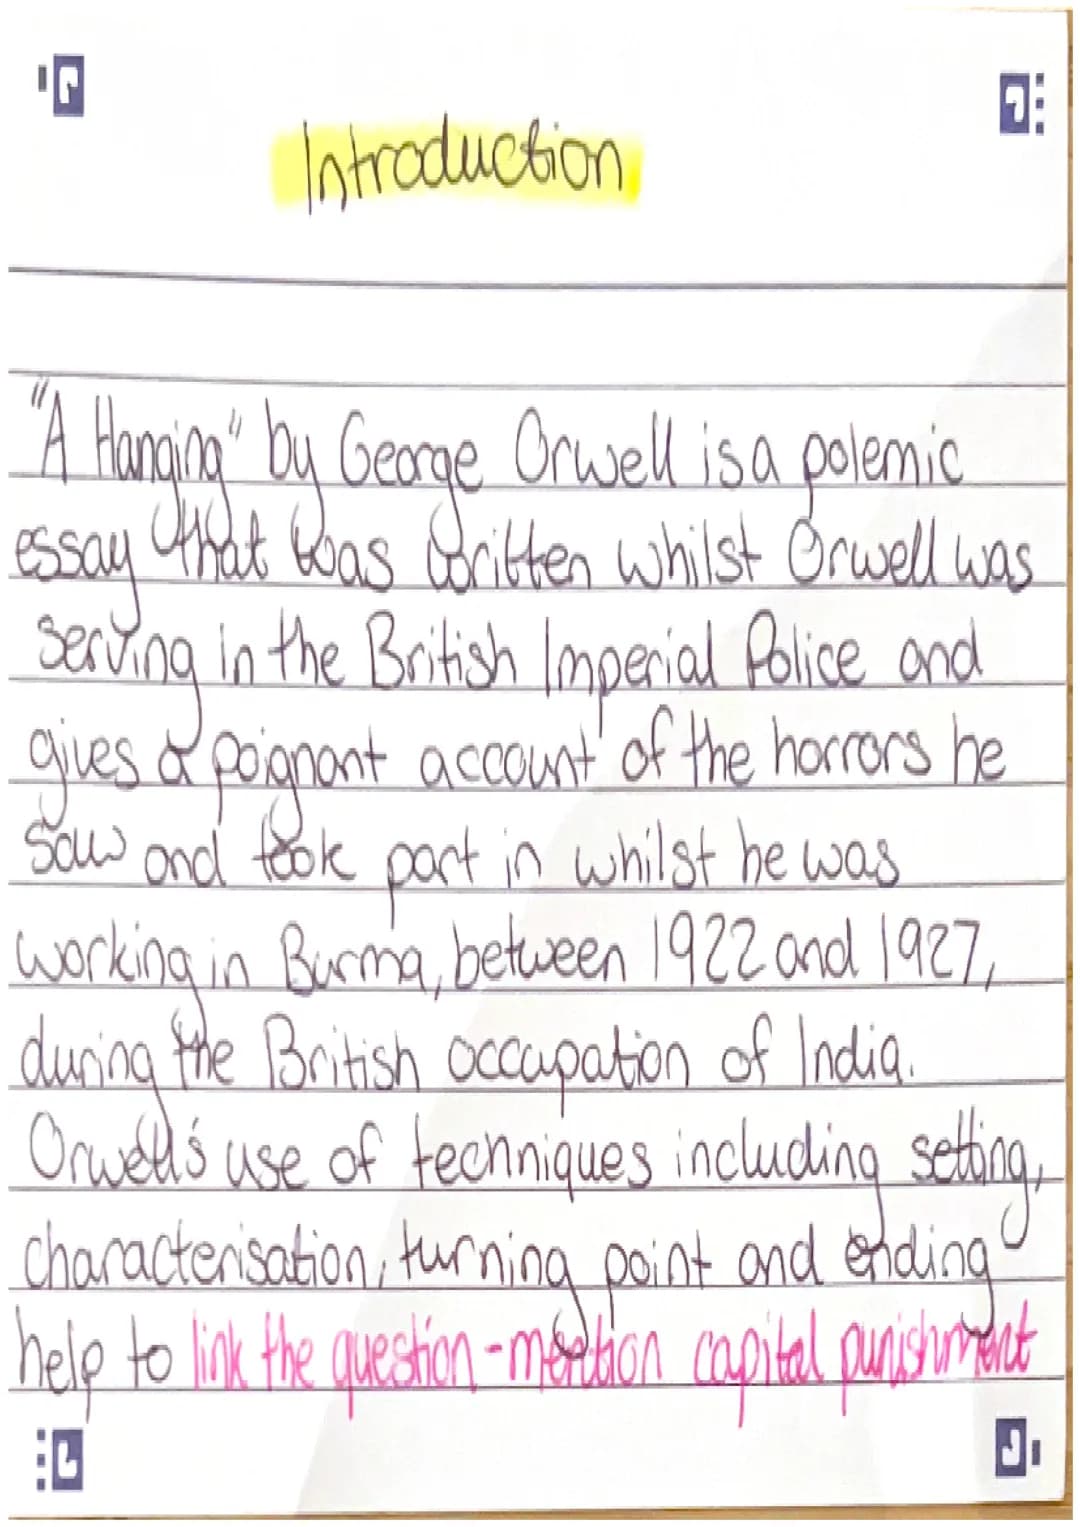 Introduction
"A Hanging" by George Orwell is a polemic
essay that was written whilst Orwell was
serving in the British Imperial Police and
gives a poignant account of the horrors he
saw and took part in whilst he was
working in Burma, between 1922 and 1927,
during the British occupation of India.
Orwell's use of techniques including setting,
characterisation, turning point and ending
help to link the question - mention capital punishment